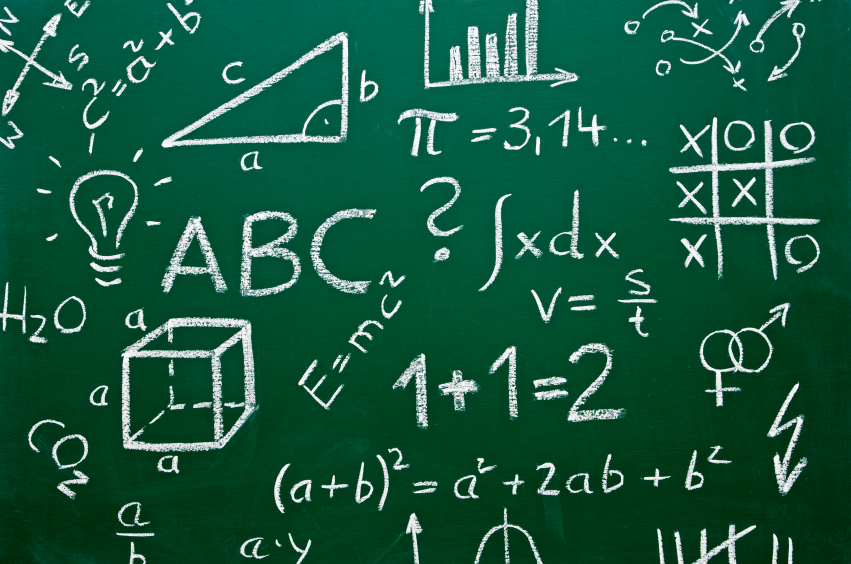 N E
S
W
c² = a² + b
c
b
a
π = 3,14...
X O O
X X
X O
ABC
?
∫xdx
v = s/t
H₂O
E = mc²
a
a
a
1+1=2
CO₂
(a+b)² = a² + 2ab + b²
a/b
a·y